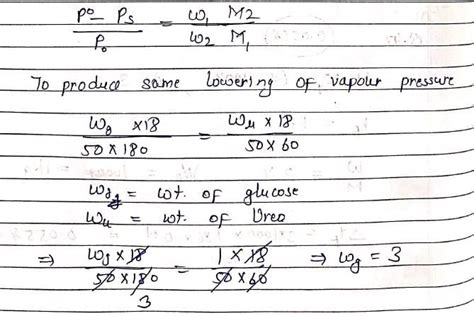 P° - Ps / P° = ω₁ M2 / ω₂ M₁
To produce same lowering of vapour pressure
Wg × 18 / 50 × 180 = Wu × 18 / 50 × 60
Wg = wt. of glucose
Wu = wt. of Urea
⇒ Wg × 18 / 50 × 180 = 1 × 18 / 50 × 60 ⇒ Wg = 3
3